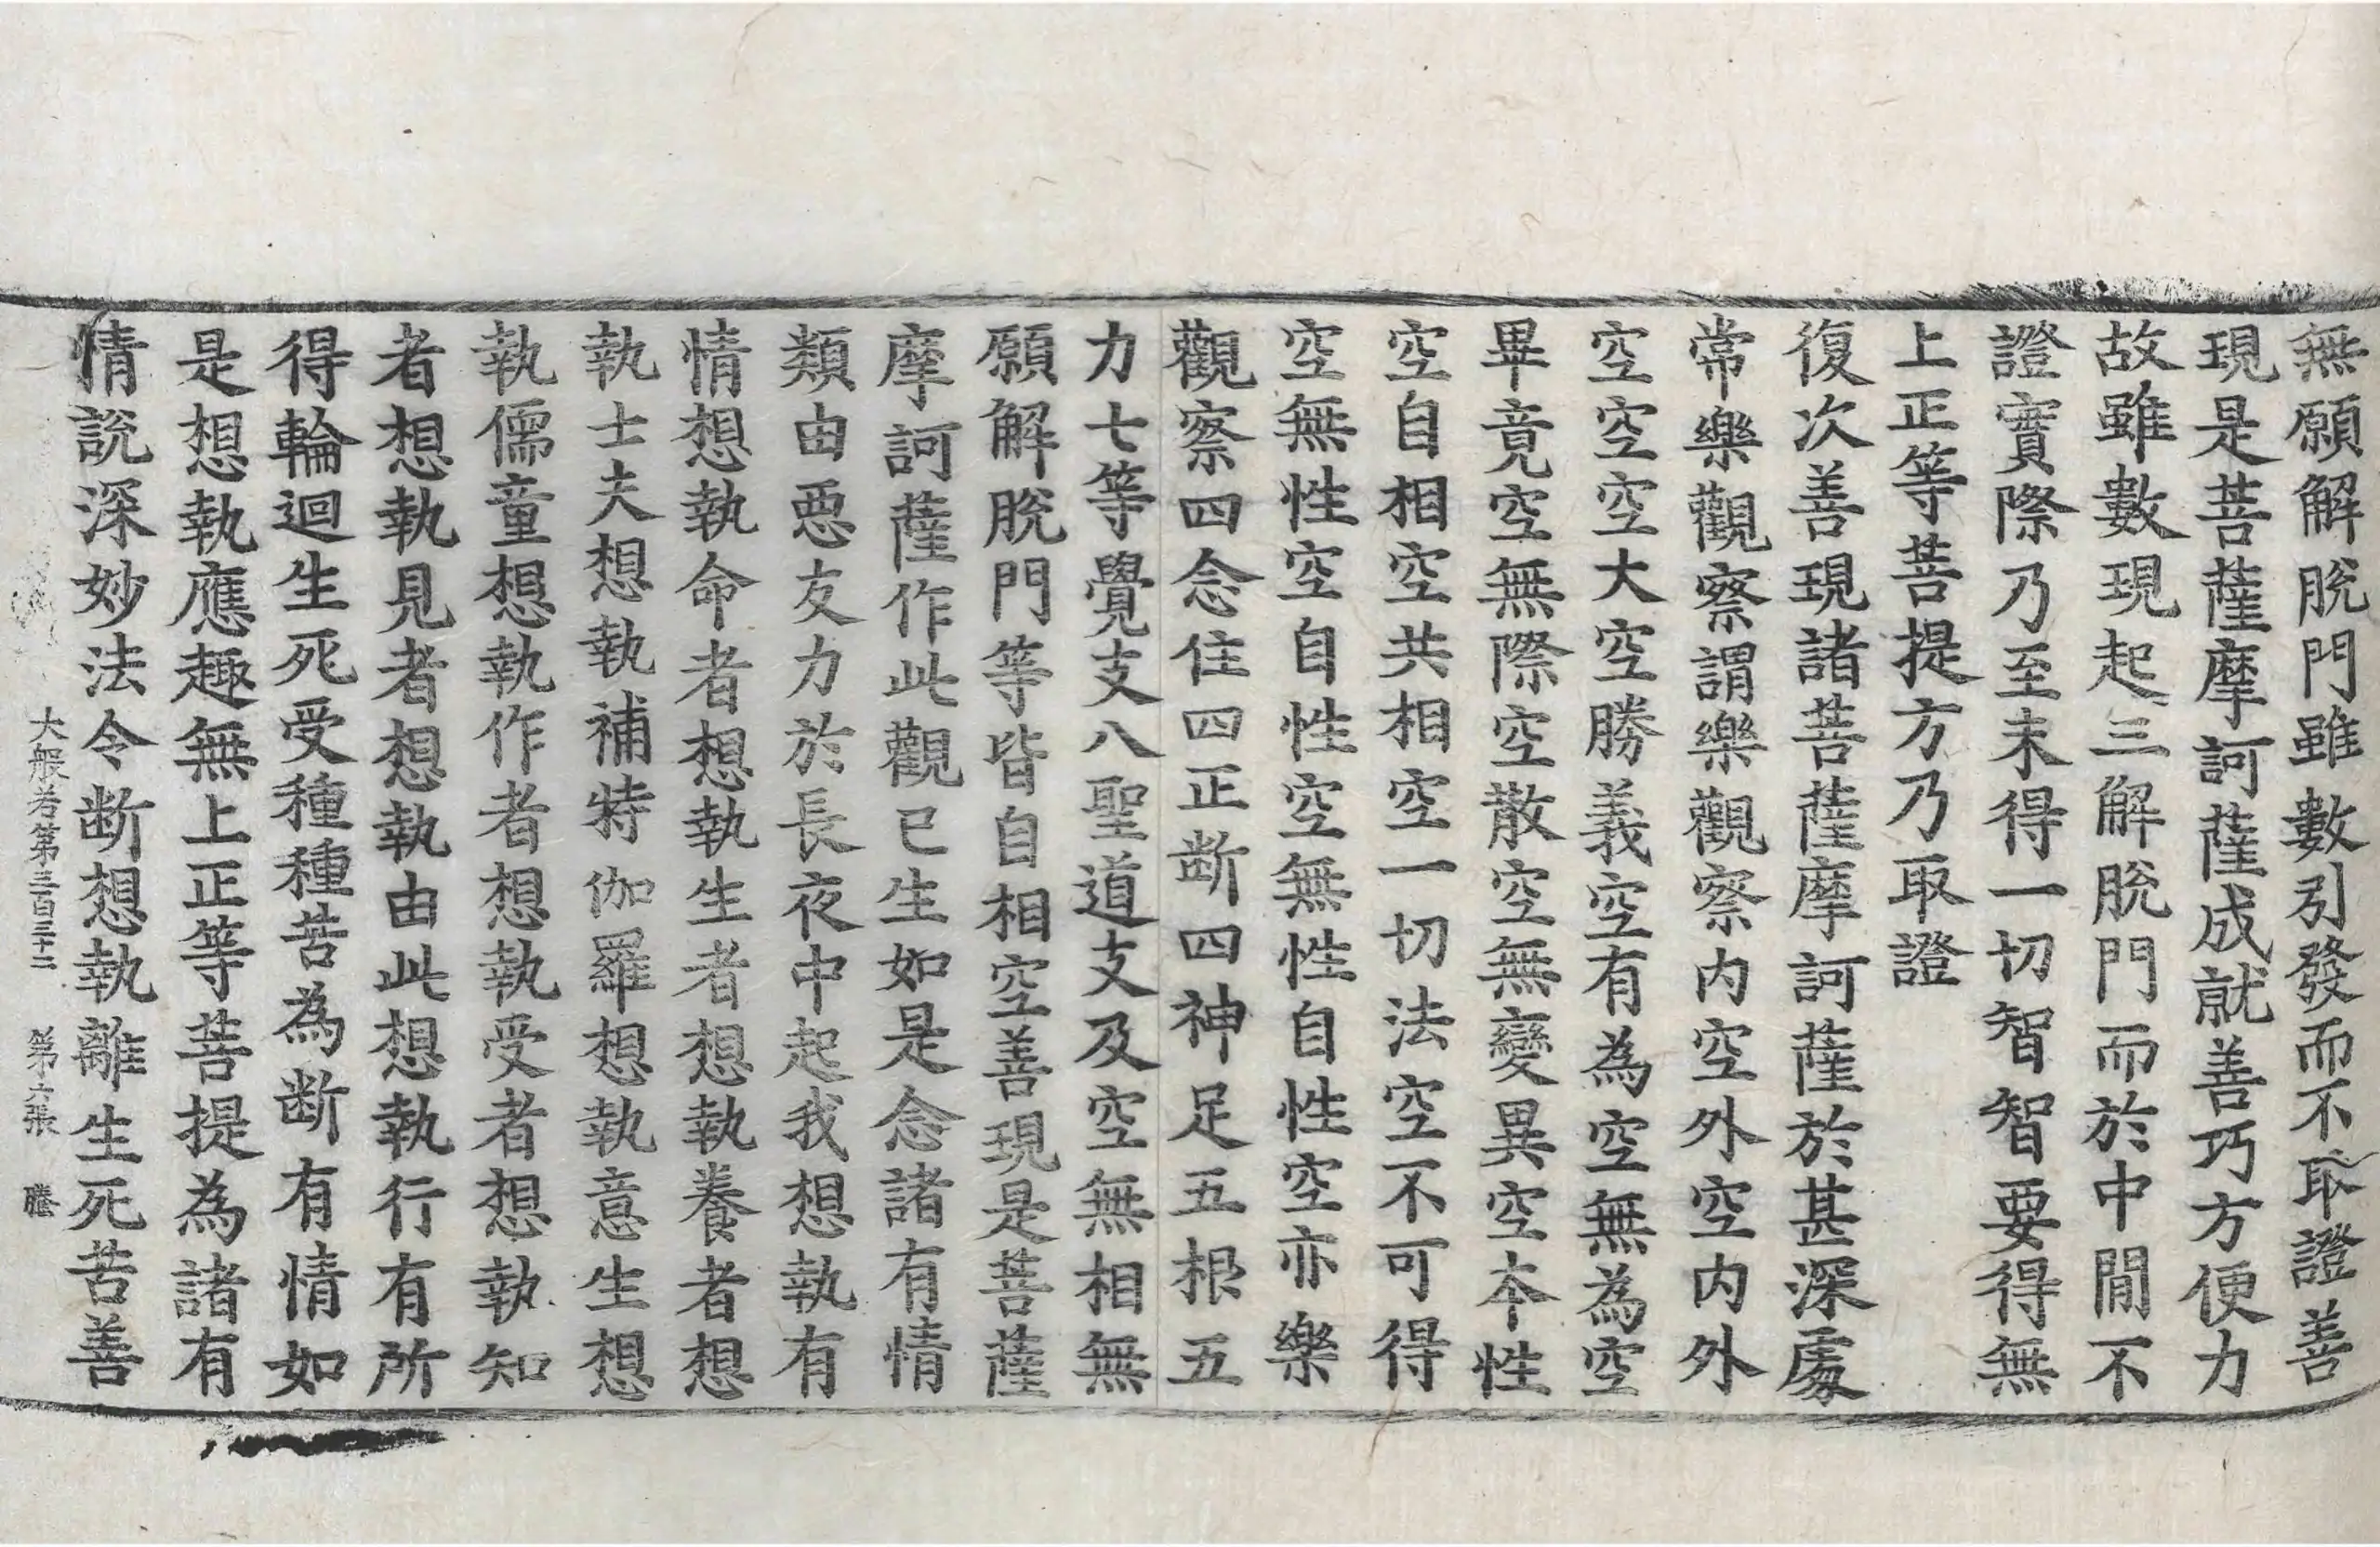 無願解脫門雖數引發而不取證善
現是菩薩摩訶薩成就善巧方便力
故雖數現起三解脫門而於中閒不
證實際乃至未得一切智智要得無
上正等菩提方乃取證
復次善現諸菩薩摩訶薩於甚深處
常樂觀察謂樂觀察內空外空內外
空空空大空勝義空有為空無為空
畢竟空無際空散空無變異空本性
空自相空共相空一切法空不可得
空無性空自性空無性自性空亦樂
觀察四念住四正断四神足五根五
力七等覺支八聖道支及空無相無
願解脫門等皆自相空善現是菩薩
摩訶薩作此觀已生如是念諸有情
類由惡友力於長夜中起我想執有
情想執命者想執生者想執養者想
執士夫想執補特伽羅想執意生想
執儒童想執作者想執受者想執知
者想執見者想執由此想執行有所
得輪迴生死受種種苦為断有情如
是想執應趣無上正等菩提為諸有
情說深妙法令断想執離生死苦善
大般若第三百三十二 第六張 騰